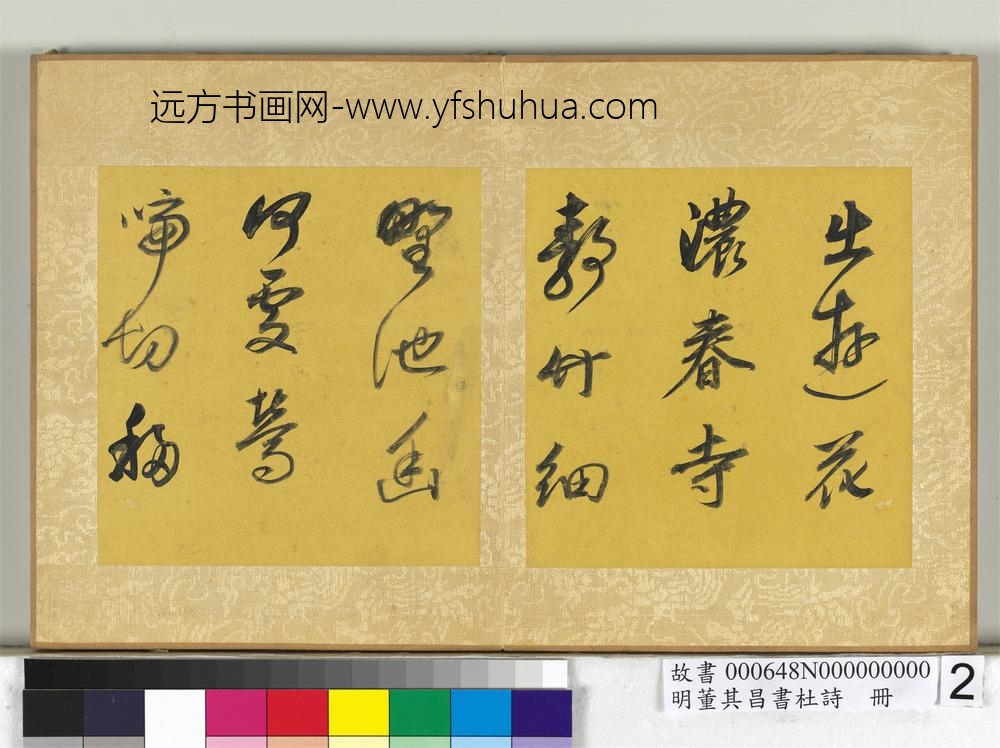 远方书画网-www.yfshuhua.com
出遊花
濃春寺
靜竹細
野池幽
何處鶯
啼切移
故書 000648N000000000
明董其昌書杜詩 冊
2